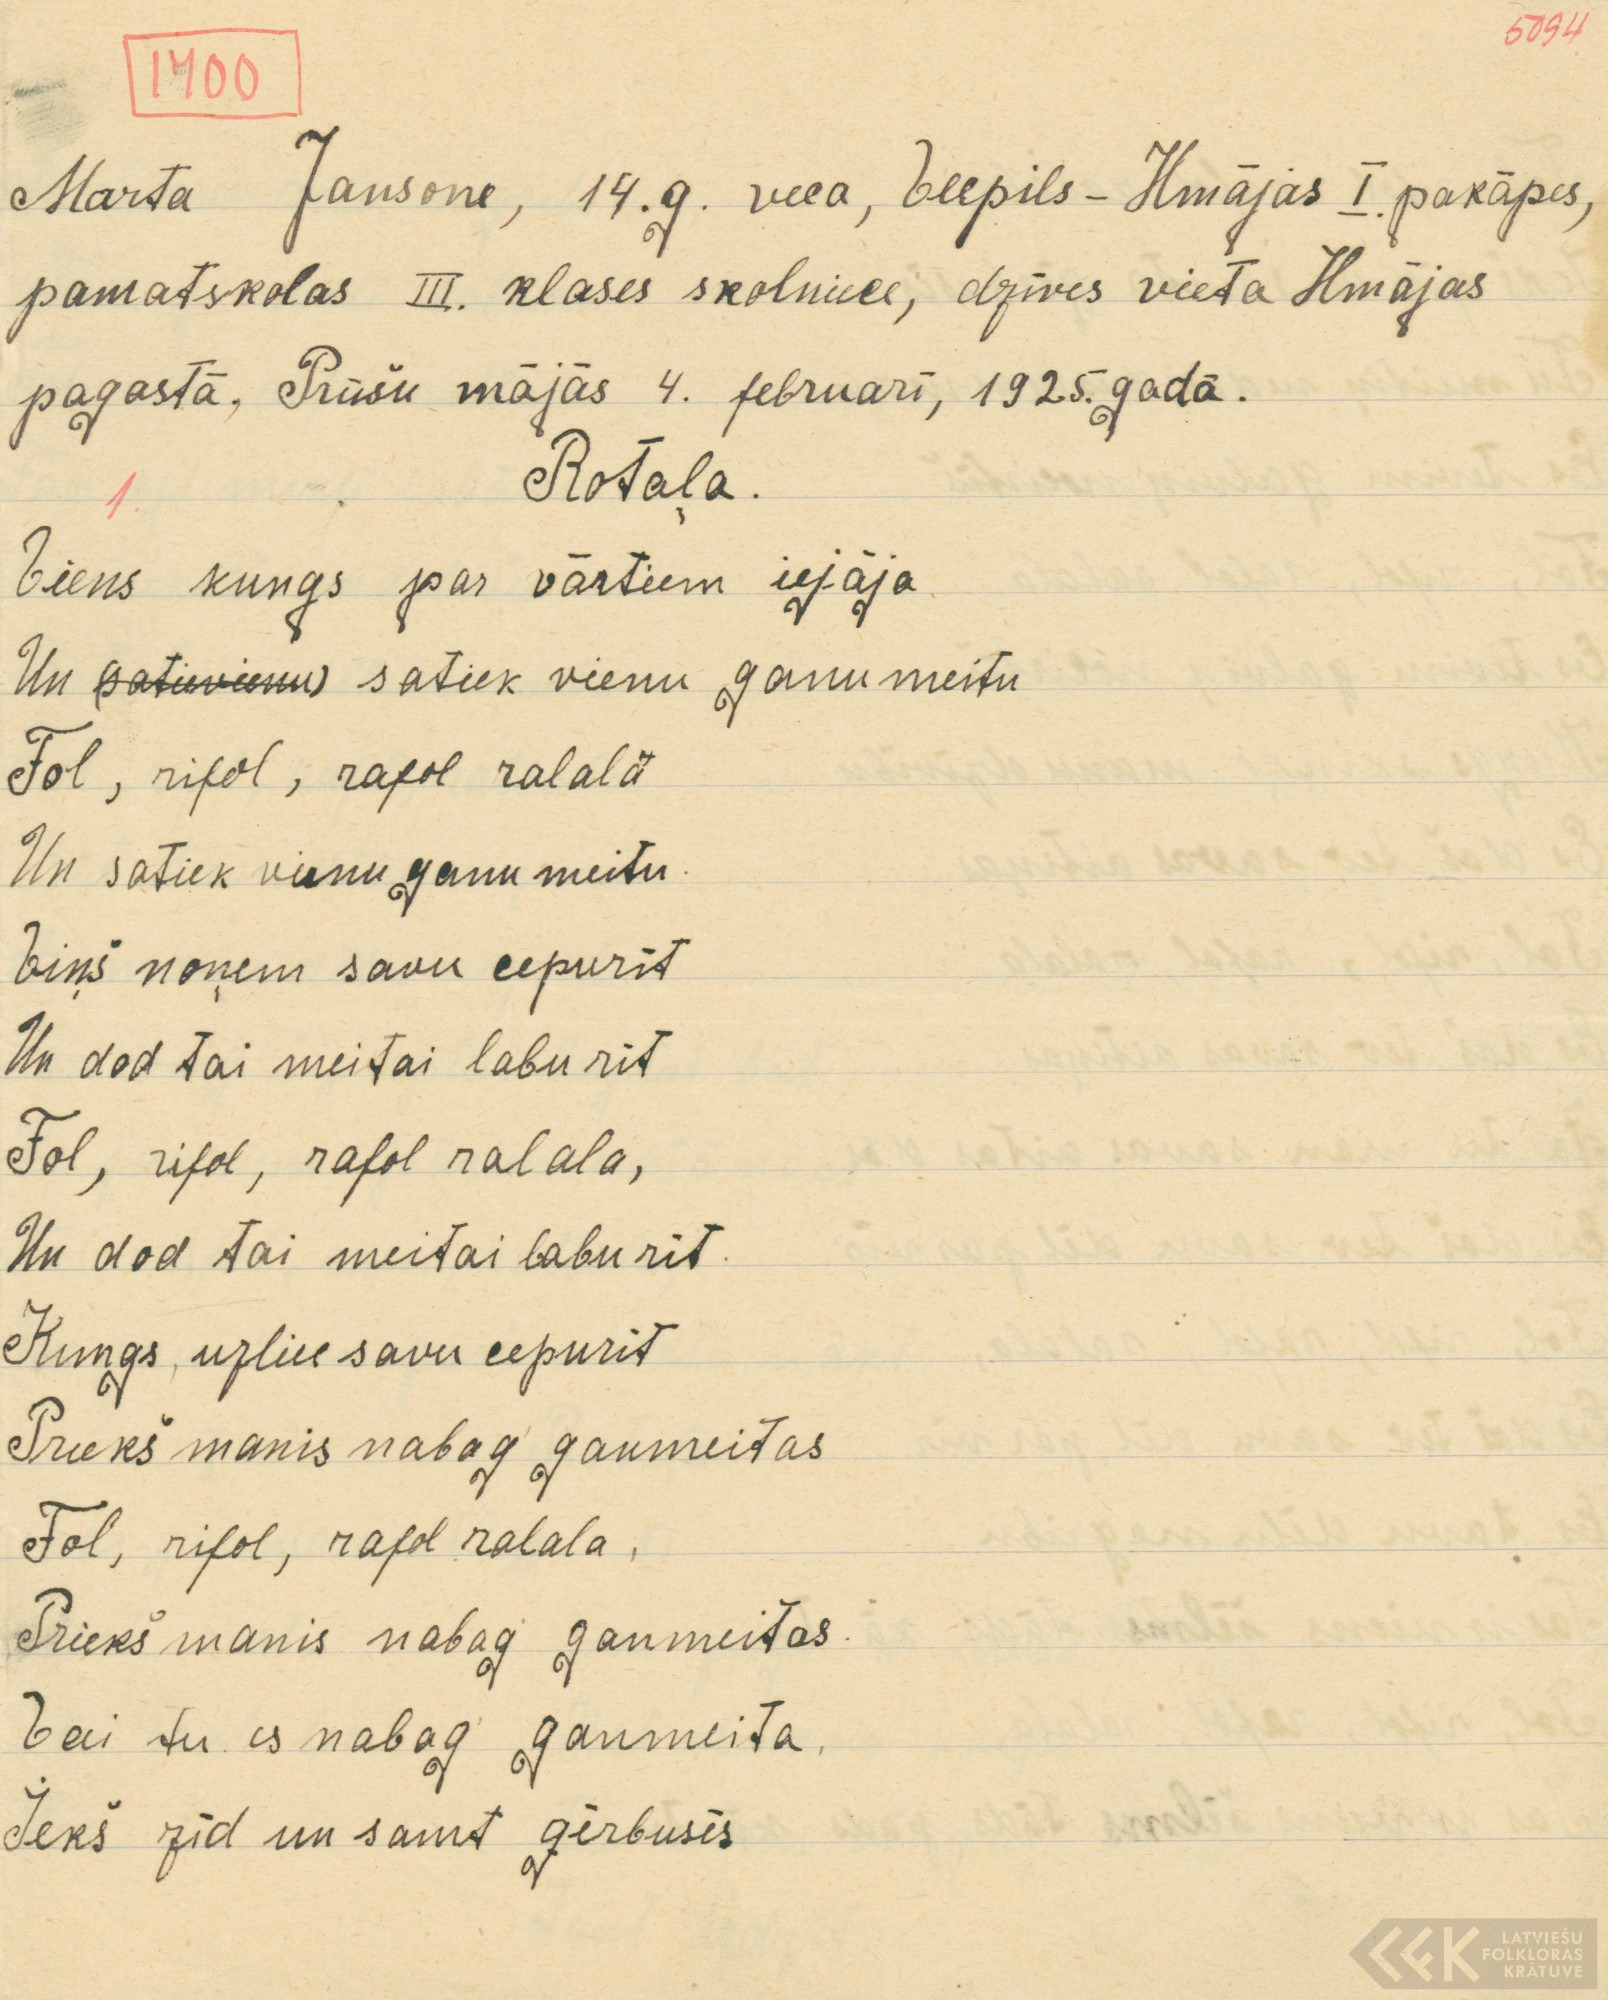 1400
5094
Marta Jansone, 14.g. veca, Vecpils-Ilmājas I. pakāpes,
pamatskolas III. klases skolniece, dzīves vieta Ilmājas
pagastā, Prūšu mājās 4. februarī, 1925. gadā.
Rotaļa.
1.
Viens kungs par vārtiem iejāja
Un (satievienu) satiek vienu ganu meitu
Fol, rifol, rafol ralalā
Un satiek vienu ganu meitu.
Viņš noņem savu cepurīt
Un dod tai meitai labu rīt
Fol, rifol, rafol ralala,
Un dod tai meitai labu rīt.
Kungs, uzliec savu cepurīt
Priekš manis nabag' ganmeitas
Fol, rifol, rafol ralala,
Priekš manis nabag' ganmeitas.
Vai tu es nabag' ganmeita,
Iekš zīd un samt ģērbusēs
LATVIEŠU
FOLKLORAS
KRĀTUVE